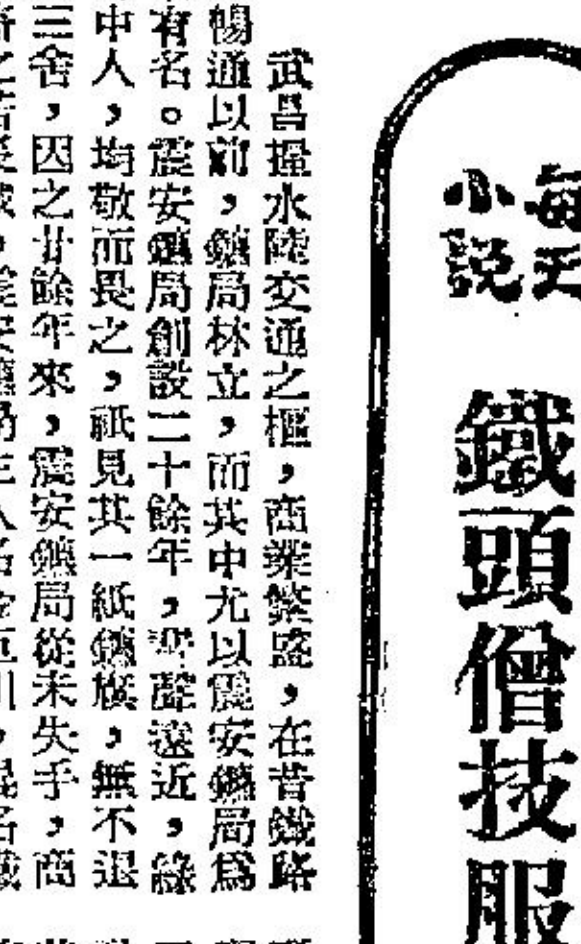 每天
小説
鐵頭僧技服
武昌握水陸交通之樞，商業繁盛，在昔鐵路
暢通以前，鑣局林立，而其中尤以震安鑣局爲
有名。震安鑣局創設二十餘年，聲遠近，綠
中人，均敬而畏之，祇見其一紙鑣旗，無不退
三舍，因之廿餘年來，震安鑣局從未失手，商